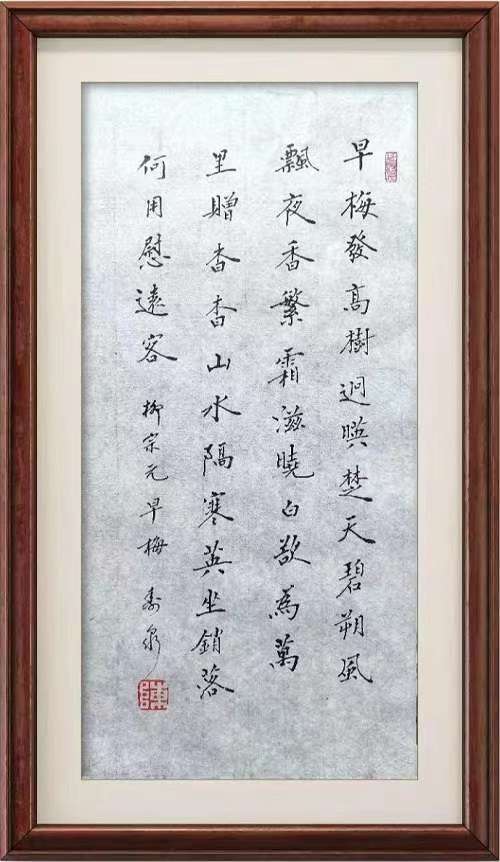 早梅發高樹迥暎楚天碧朔風
飄夜香繁霜滋曉白欲為萬
里贈杳杳山水隔寒英坐銷落
何用慰遠客 柳宗元早梅 壽泉